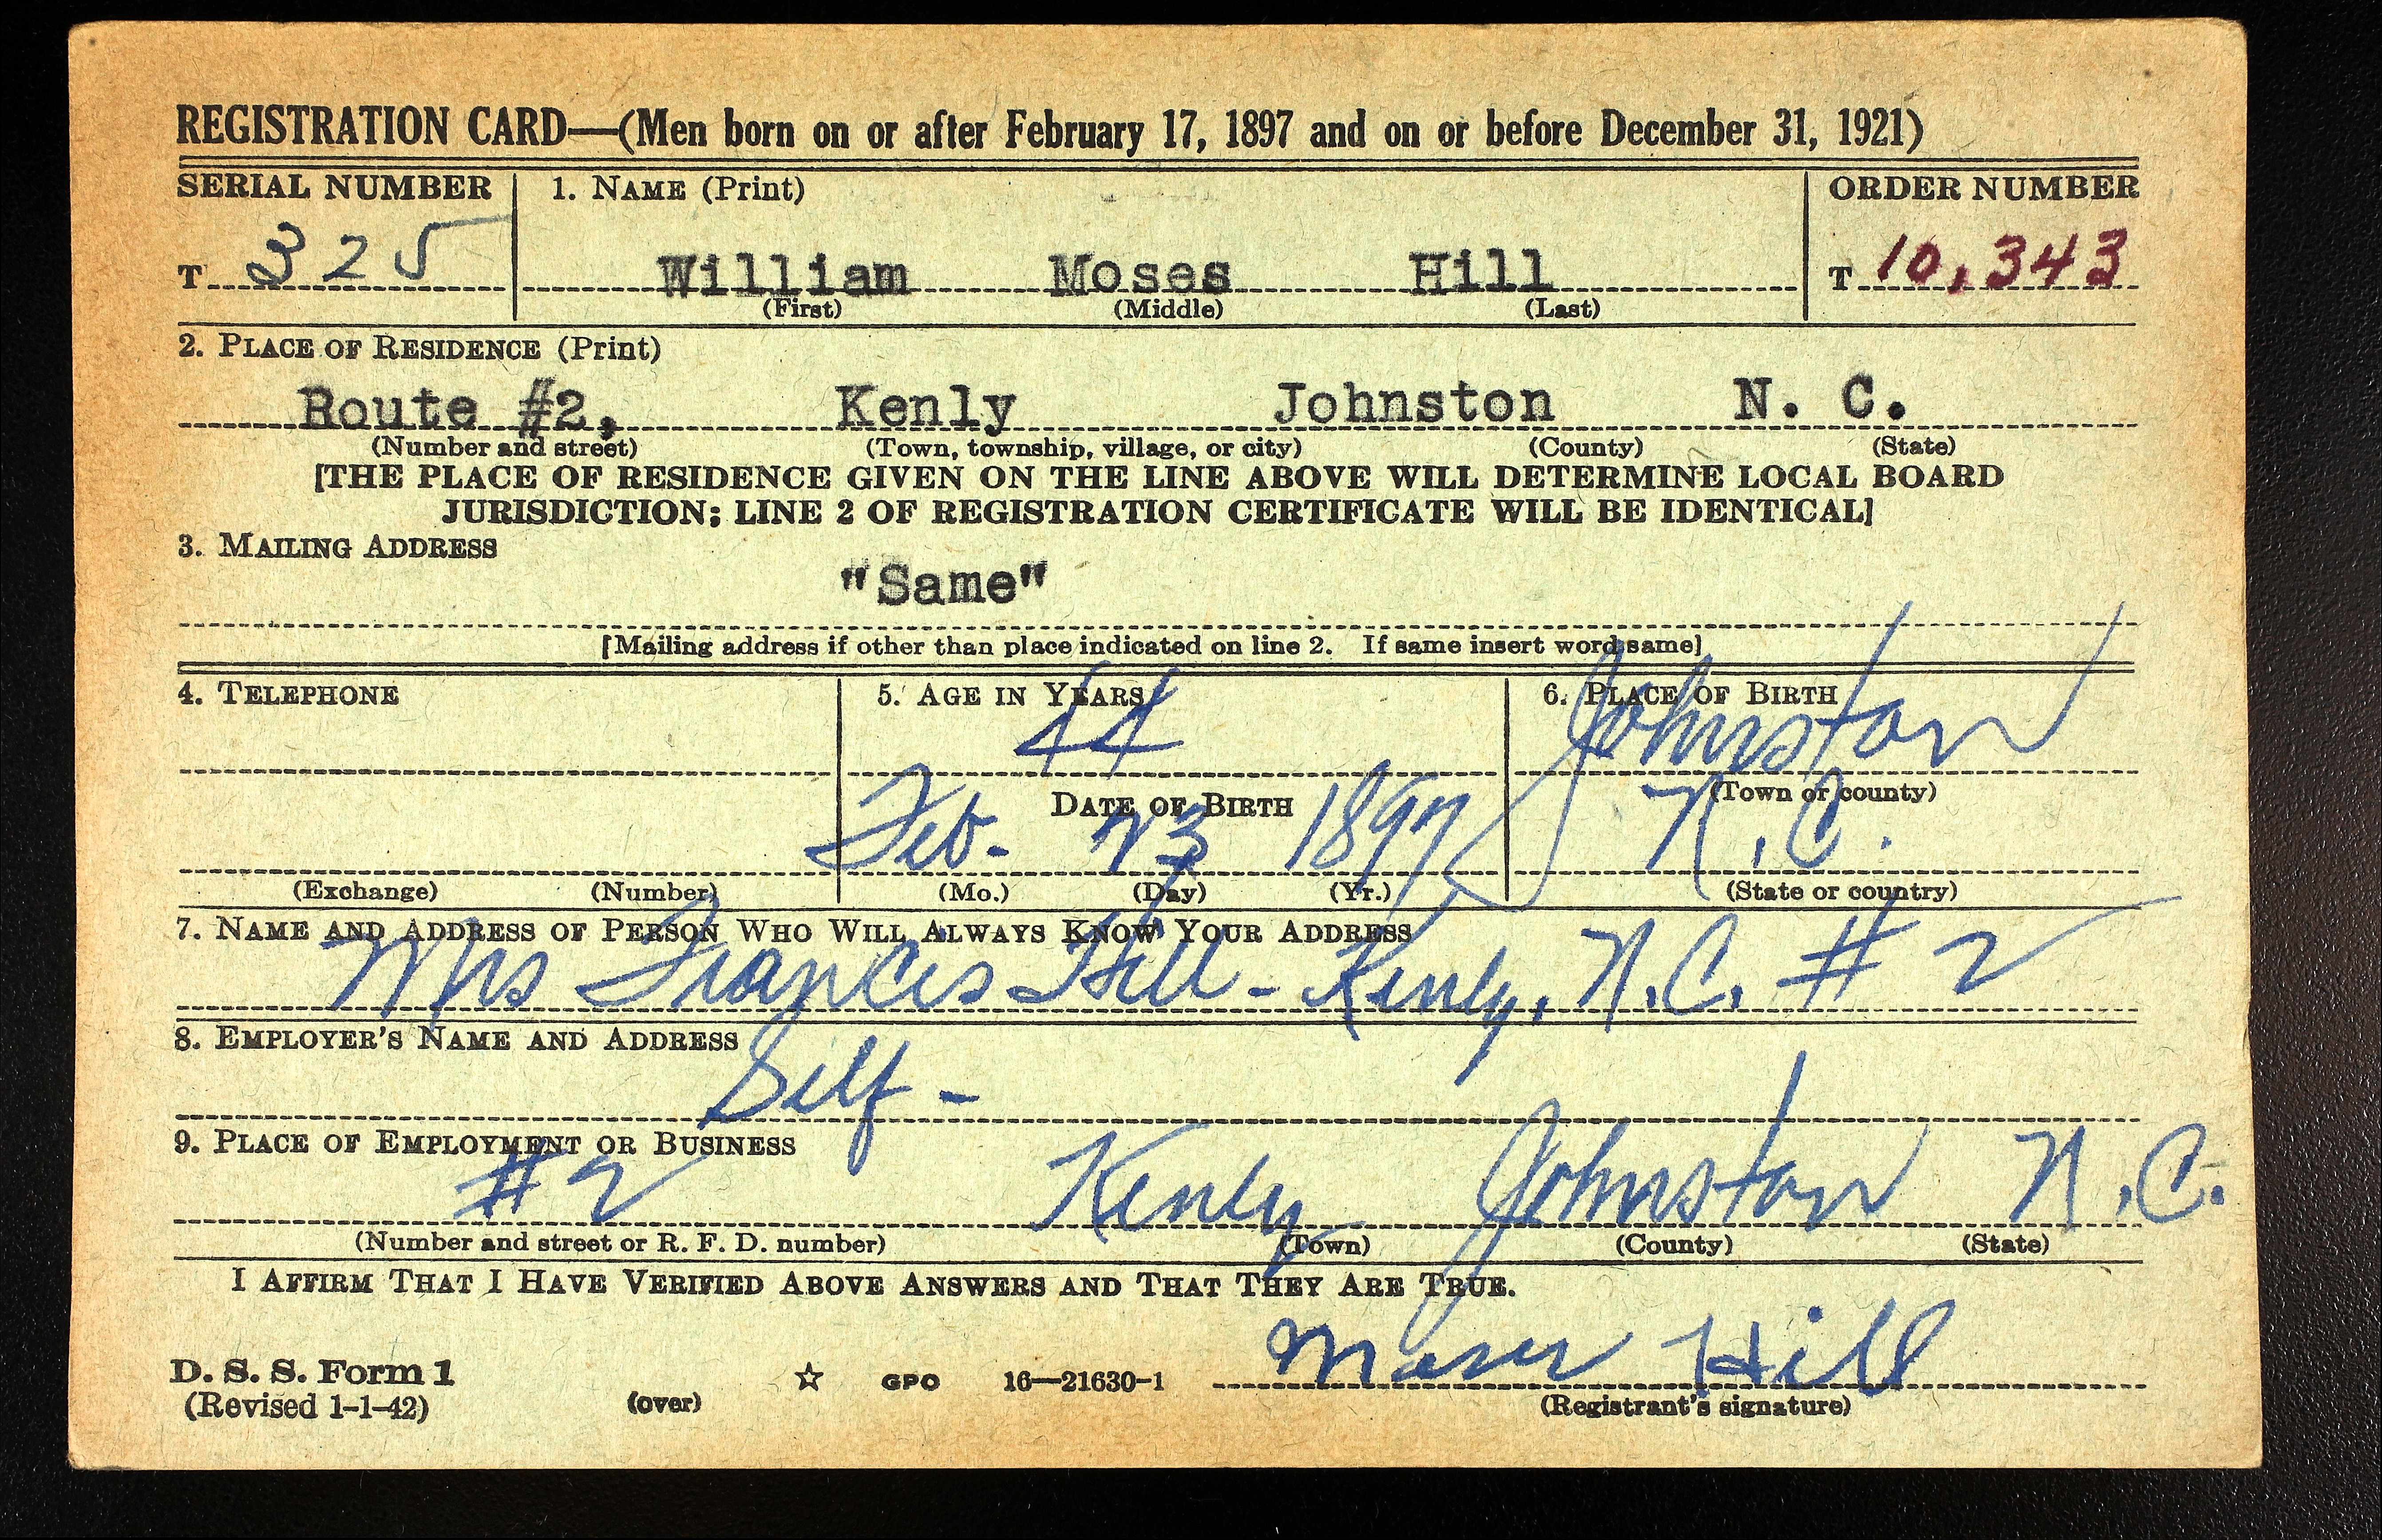 REGISTRATION CARD—(Men born on or after February 17, 1897 and on or before December 31, 1921)
SERIAL NUMBER 1. NAME (Print) ORDER NUMBER
T 325 William Moses Hill T 10,343
(First) (Middle) (Last)
2. PLACE OF RESIDENCE (Print)
Route #2, Kenly Johnston N. C.
(Number and street) (Town, township, village, or city) (County) (State)
[THE PLACE OF RESIDENCE GIVEN ON THE LINE ABOVE WILL DETERMINE LOCAL BOARD
JURISDICTION; LINE 2 OF REGISTRATION CERTIFICATE WILL BE IDENTICAL]
3. MAILING ADDRESS
"Same"
[Mailing address if other than place indicated on line 2. If same insert word same]
4. TELEPHONE 5. AGE IN YEARS 6. PLACE OF BIRTH
44 Johnston
DATE OF BIRTH (Town or county)
Feb. 23 1897 N.C.
(Exchange) (Number) (Mo.) (Day) (Yr.) (State or country)
7. NAME AND ADDRESS OF PERSON WHO WILL ALWAYS KNOW YOUR ADDRESS
Mrs Frances Hill - Kenly, N.C. # 2
8. EMPLOYER'S NAME AND ADDRESS
Self -
9. PLACE OF EMPLOYMENT OR BUSINESS
#2 Kenly Johnston N.C.
(Number and street or R. F. D. number) (Town) (County) (State)
I AFFIRM THAT I HAVE VERIFIED ABOVE ANSWERS AND THAT THEY ARE TRUE.
Moses Hill
D. S. S. Form 1
(Revised 1-1-42) (over) ☆ GPO 16—21630-1 (Registrant's signature)